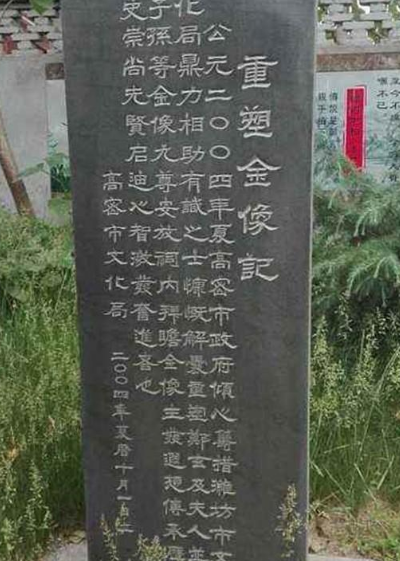 重塑金像記
公元二〇〇四年夏高密市政府傾心籌措濰坊市文
化局鼎力相助有識之士慷慨解囊重塑鄭玄及夫人並
子孫等金像九尊安放祠内拜瞻金像生發遐想傳承歷
史崇尚先賢启迪心智激發奮進善也
高密市文化局
二〇〇四年夏曆十月一日
至今不
嘆不已